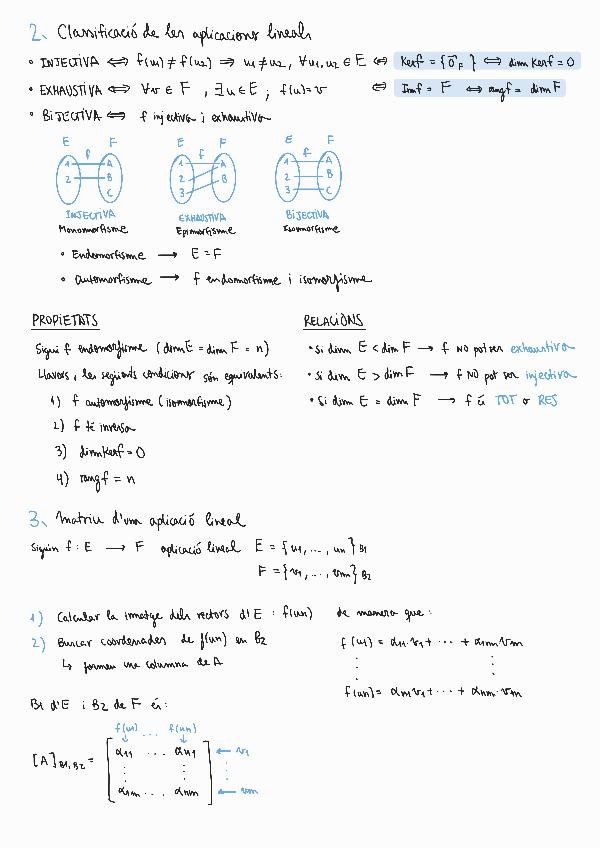 2. Classificació de les aplicacions lineals
• INJECTIVA ⟺ f(u1) ≠ f(u2) ⟹ u1 ≠ u2, ∀u1,u2 ∈ E ⟺ Kerf = {0⃗F} ⟺ dim Kerf = 0
• EXHAUSTIVA ⟺ ∀v ∈ F , ∃u ∈ E ; f(u) = v ⟺ Imf = F ⟺ rangf = dim F
• BIJECTIVA ⟺ f injectiva i exhaustiva
E F E F E F
f f f
1 A 1 A 1 A
2 B 2 B 2 B
C 3 3 C
INJECTIVA EXHAUSTIVA BIJECTIVA
Monomorfisme Epimorfisme Isomorfisme
• Endomorfisme → E = F
• automorfisme → f endomorfisme i isomorfisme
PROPIETATS
Sigui f endomorfisme (dim E = dim F = n)
Llavors, les següents condicions són equivalents:
1) f automorfisme (isomorfisme)
2) f té inversa
3) dimKerf = 0
4) rangf = n
RELACIONS
• Si dim E < dim F → f NO pot ser exhaustiva
• Si dim E > dim F → f NO pot ser injectiva
• Si dim E = dim F → f és TOT o RES
3. Matriu d'una aplicació lineal
Siguin f : E → F aplicació lineal E = {u1, ..., un}B1
F = {v1, ..., vm}B2
1) Calcular la imatge dels vectors d'E : f(un) de manera que:
2) Buscar coordenades de f(un) en B2
↳ formen una columna de A
f(u1) = α11·v1 + ··· + α1m·vm
⋮ ⋮
f(un) = αn1·v1 + ··· + αnm·vm
B1 d'E i B2 de F és:
f(u1) ... f(un)
↓ ↓
[A]B1,B2 =
α11 ... αn1 ← v1
⋮ ⋮ ⋮
α1m ... αnm ← vm